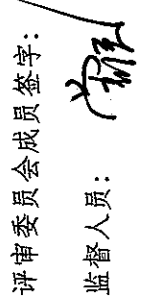 评审委员会成员签字：
监督人员：